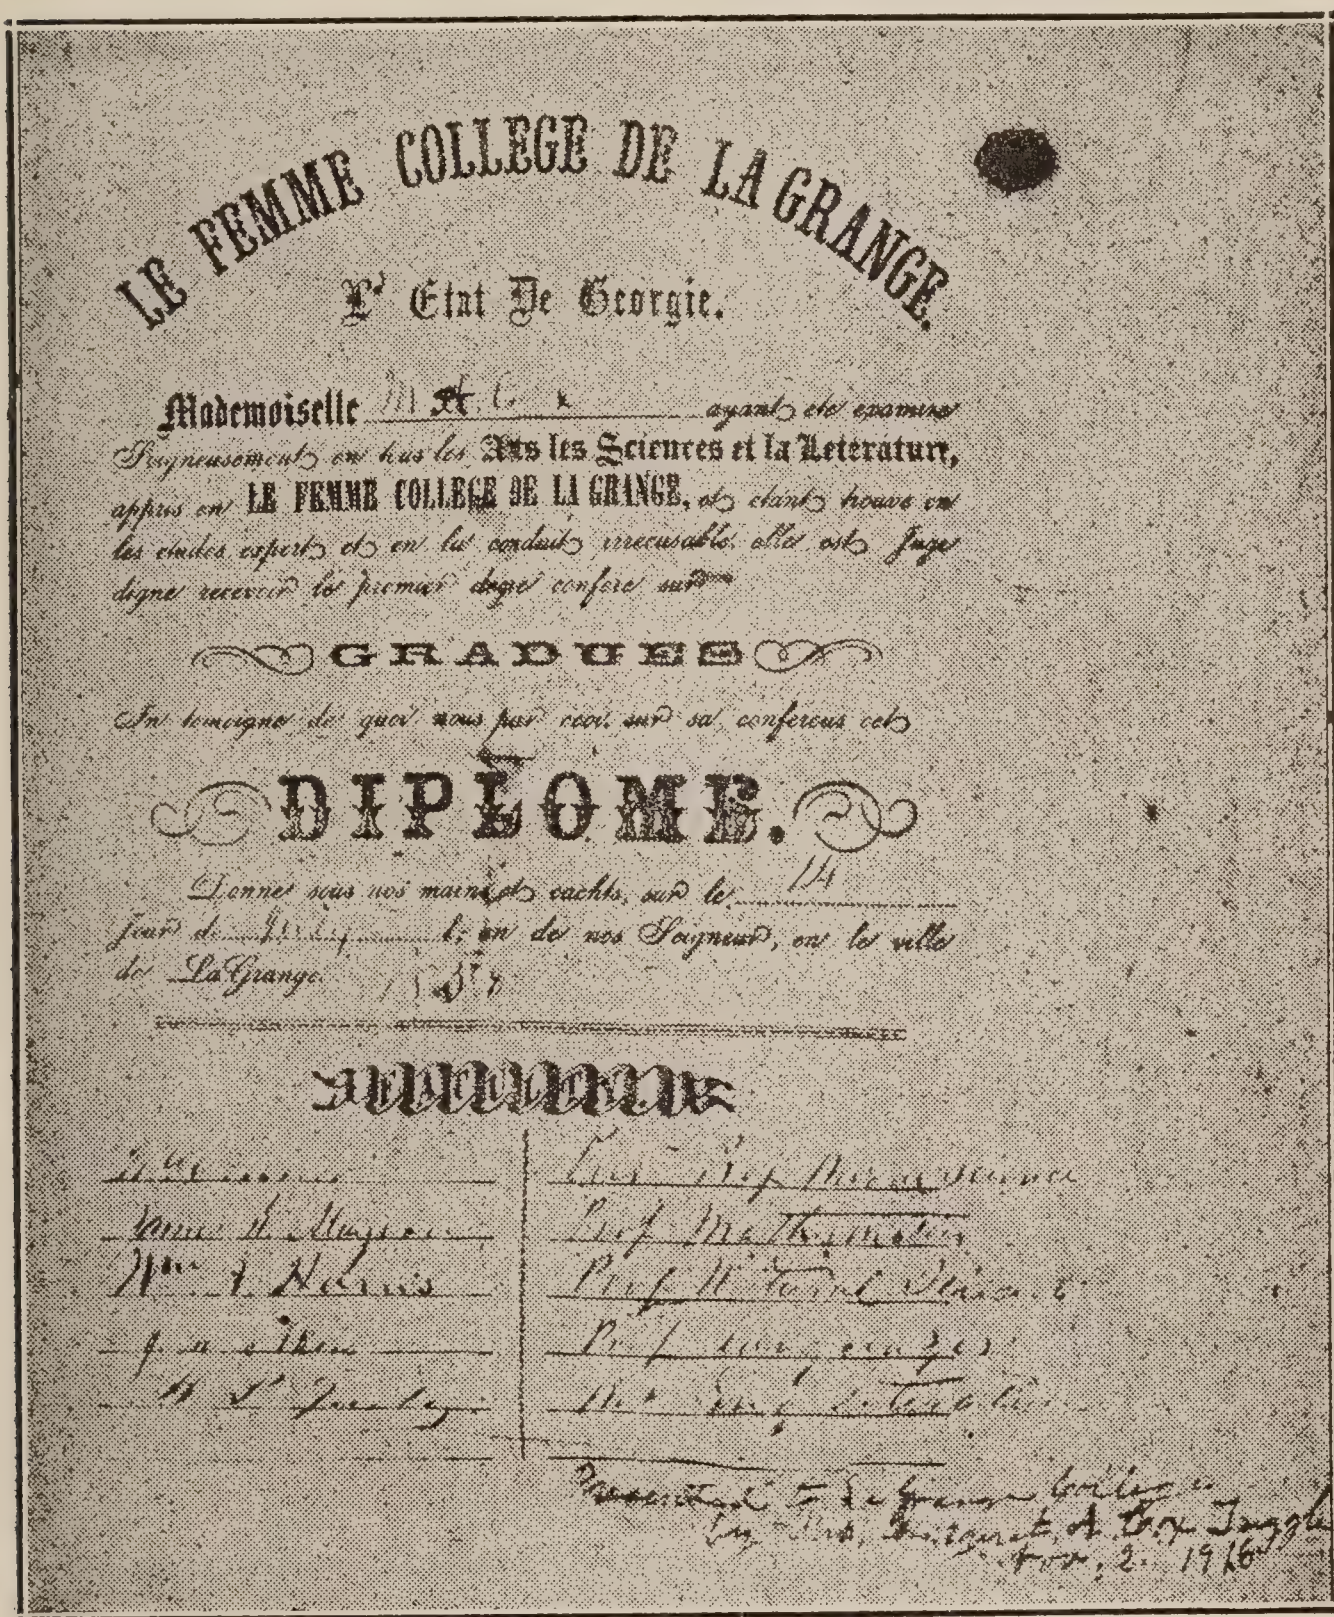 LE FEMME COLLEGE DE LA GRANGE.
L' Etat De Georgie.
Mademoiselle M A C x ayant ete examine
Seigneusement en tus les Arts les Sciences et la Leterature,
appris en LE FEMME COLLEGE DE LA GRANGE, et etant trouve en
les etudes expert et en la conduit irrecusable. elle est Juge
digne recevoir le premier degre confere sur
GRADUES
In temoigne de quoi nous par ceci. sur sa confereus cet
DIPLOME.
Donne sous nos mains et cachts, sur le 14
Jour de July l; an de nos Seigneur, en le ville
de LaGrange.
FACULTY.
Prof Moral Science
Prof Mathematics
Wm Harris Prof Natural Science
Prof Languages
Literature
Presented to La Grange College
by Mrs. Margaret A. Cox Tuggle
Nov. 2. 1916